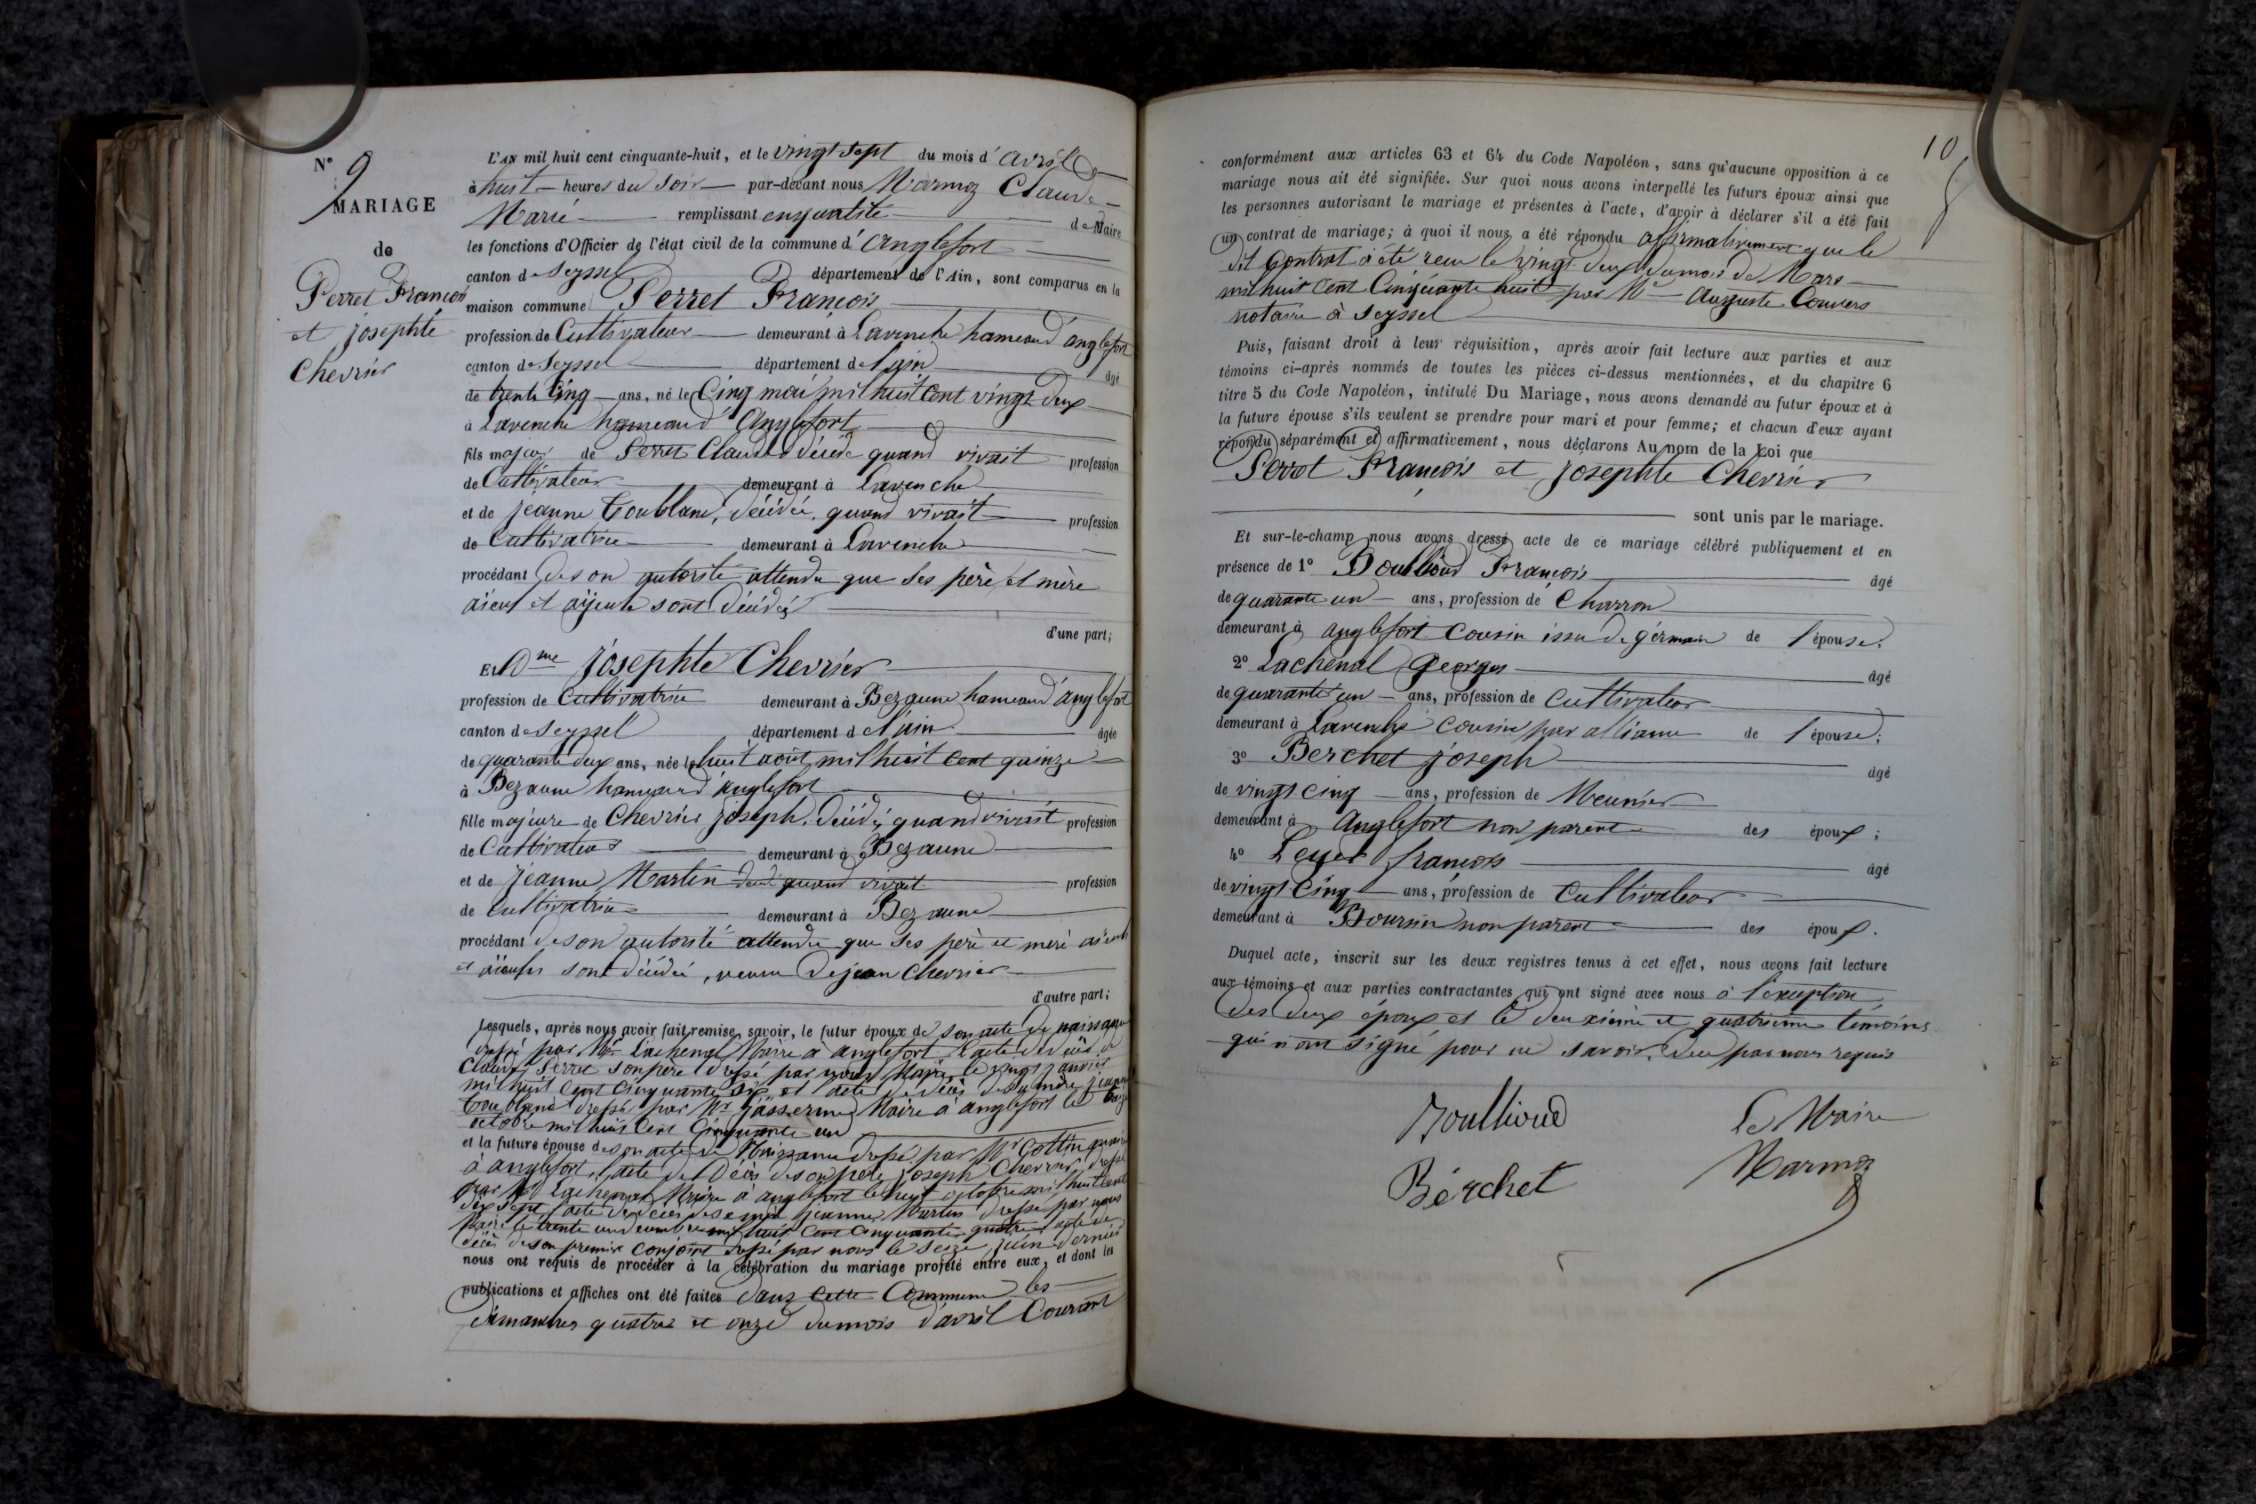 N° 9
MARIAGE
de
Perret François
et josephte
Chevrier
L'AN mil huit cent cinquante-huit, et le vingt sept du mois d'avril
à huit heures du soir par-devant nous Marmoz Claude
Marie remplissant en qualité de Maire
les fonctions d'Officier de l'état civil de la commune d'anglefort
canton de Seyssel département de l'Ain, sont comparus en la
maison commune Perret François
profession de Cultivateur demeurant à Lavenche hameau d'anglefort
canton de Seyssel département de l'ain âgé
de trente cinq ans, né le Cinq mai mil huit cent vingt deux
à Lavenche hameau d'Anglefort
fils majeur de Perret Claude décédé quand vivait profession
de Cultivateur demeurant à Lavenche
et de jeanne Toublanc, décédée, quand vivait profession
de Cultivatrice demeurant à Lavenche
procédant de son autorité attendu que ses père et mère
aïeux et aÿeule sont décédés
d'une part;
Et Dme josephte Chevrier
profession de Cultivatrice demeurant à Bezaune hameau d'anglefort
canton de Seyssel département de l'ain âgée
de quarante deux ans, née le huit août mil huit cent quinze
à Bezaune hameau d'anglefort
fille majeure de Chevrier joseph, décédé, quand vivait profession
de Cultivateur demeurant à Bezaune
et de jeanne Martin quand vivait profession
de Cultivatrice demeurant à Bezaune
procédant de son autorité attendu que ses père et mère aïeux
et aïeules sont décédés, veuve de jean Chevrier
d'autre part;
Lesquels, après nous avoir fait remise, savoir, le futur époux de son acte de naissance
dressé par Mr Lachenal Maire à anglefort, l'acte de décès de
Claude Perret son père dressé par nous Maire le vingt janvier
mil huit cent cinquante six et l'acte de décès de sa mère jeanne
Toublanc dressé par Mr Jasserme Maire à anglefort le
octobre mil huit cent cinquante un
et la future épouse de son acte de Naissance dressé par Mr Gottin maire
à anglefort, l'acte de Décès de son père joseph Chevrier dressé
par Mr Lachenal Maire à anglefort le huit octobre mil huit cent
dix sept, l'acte de décès de sa mère jeanne Martin dressé par nous
Maire le trente un decembre mil huit cent cinquante quatre l'acte de
décès de son premier conjoint dressé par nous le seize juin dernier
nous ont requis de procéder à la célébration du mariage projeté entre eux, et dont les
publications et affiches ont été faites dans cette Commune les
dimanches quatre et onze du mois d'avril Courant
10
conformément aux articles 63 et 64 du Code Napoléon, sans qu'aucune opposition à ce
mariage nous ait été signifiée. Sur quoi nous avons interpellé les futurs époux ainsi que
les personnes autorisant le mariage et présentes à l'acte, d'avoir à déclarer s'il a été fait
un contrat de mariage; à quoi il nous a été répondu affirmativement que le
dit Contrat à été reçu le vingt deux du mois de Mars
mil huit cent Cinquante huit par Me Auguste Couvers
notaire à Seyssel
Puis, faisant droit à leur réquisition, après avoir fait lecture aux parties et aux
témoins ci-après nommés de toutes les pièces ci-dessus mentionnées, et du chapitre 6
titre 5 du Code Napoléon, intitulé Du Mariage, nous avons demandé au futur époux et à
la future épouse s'ils veulent se prendre pour mari et pour femme; et chacun d'eux ayant
répondu séparément et affirmativement, nous déclarons Au nom de la Loi que
Perret François et josephte Chevrier
sont unis par le mariage.
Et sur-le-champ nous avons dressé acte de ce mariage célébré publiquement et en
présence de 1° Boullioud François âgé
de quarante un ans, profession de Charron
demeurant à anglefort cousin issu de germain de l'épouse.
2° Lachenal Georges âgé
de quarante un ans, profession de cultivateur
demeurant à Lavenche cousin par alliance de l'épouse;
3° Berchet joseph âgé
de vingt cinq ans, profession de Meunier
demeurant à Anglefort non parent des époux;
4° Leyer françois âgé
de vingt cinq ans, profession de Cultivateur
demeurant à Boursin non parent des époux.
Duquel acte, inscrit sur les deux registres tenus à cet effet, nous avons fait lecture
aux témoins et aux parties contractantes qui ont signé avec nous à l'exception
des deux époux et le deuxième et quatrième témoins
qui n'ont signé pour ne savoir, de ce par nous requis
Boullioud Le Maire
Bérchet Marmoz